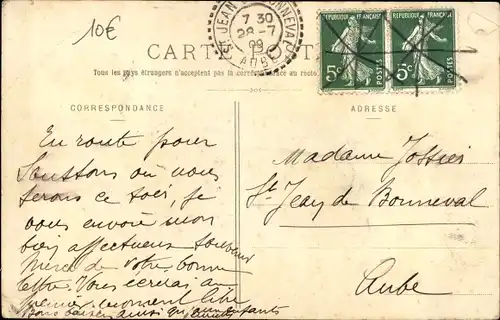 10€
ST JEAN DE BONNEVAL
7 30
28-7
09
AUBE
REPUBLIQUE FRANÇAISE
5c
POSTES
REPUBLIQUE FRANÇAISE
5c
POSTES
CARTE POSTALE
Tous les pays étrangers n'acceptent pas la correspondance au recto
CORRESPONDANCE
ADRESSE
En route pour
où nous
serons ce soir, je
vous envoie mon
bien affectueux souvenir
Merci de votre bonne
lettre. Vous écrirai au
premier moment libre
Bons baisers ainsi qu'aux enfants
Madame
St Jean de Bonneval
Aube